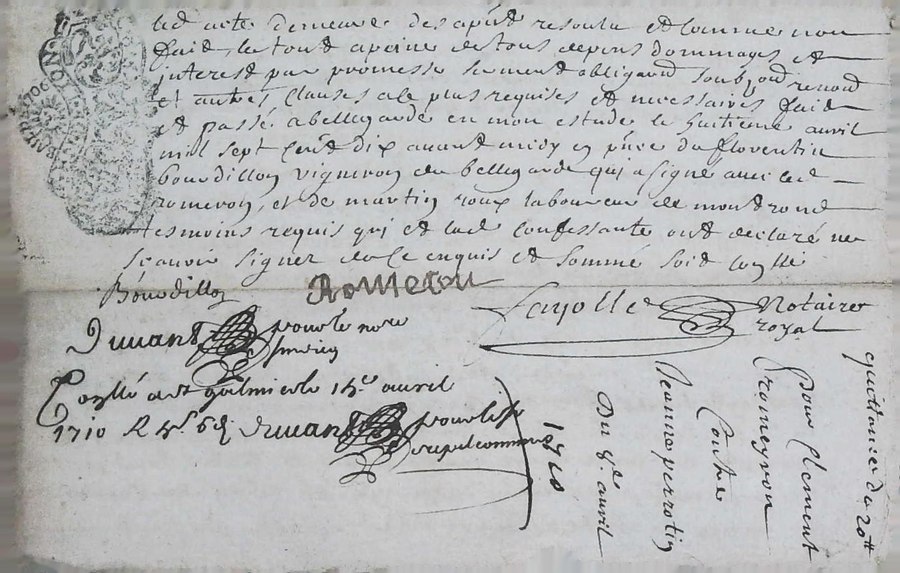 led acte demeure des apñt resoulu et comme non
faid, le tout a peine de tous depens dommages et
interest par promesse serment obligaõn soubz on renond
et autres clauses a le plus requises et necessaires faid
et passé a bellegarde en mon estude le huitieme avril
mil sept cent dix avant midy en pñce de florentin
bourdillon vigneron de bellegarde qui a signé avec led
romeron, et de martin roux laboureur de montrond
tesmoins requis qui et lad confessante ont declaré ne
scavoir signer de ce enquis et sommé soit conllé
Bourdillon
Romeron
Fayolle Notaire
royal
Duvant pour le nore
Conllé a st galmier le 14e avril
1710 R Duvant pour
quittance de 20tt
Pour Clement
cromeyron
Contre
Jeanne perrotin
Du 8e avril
1710